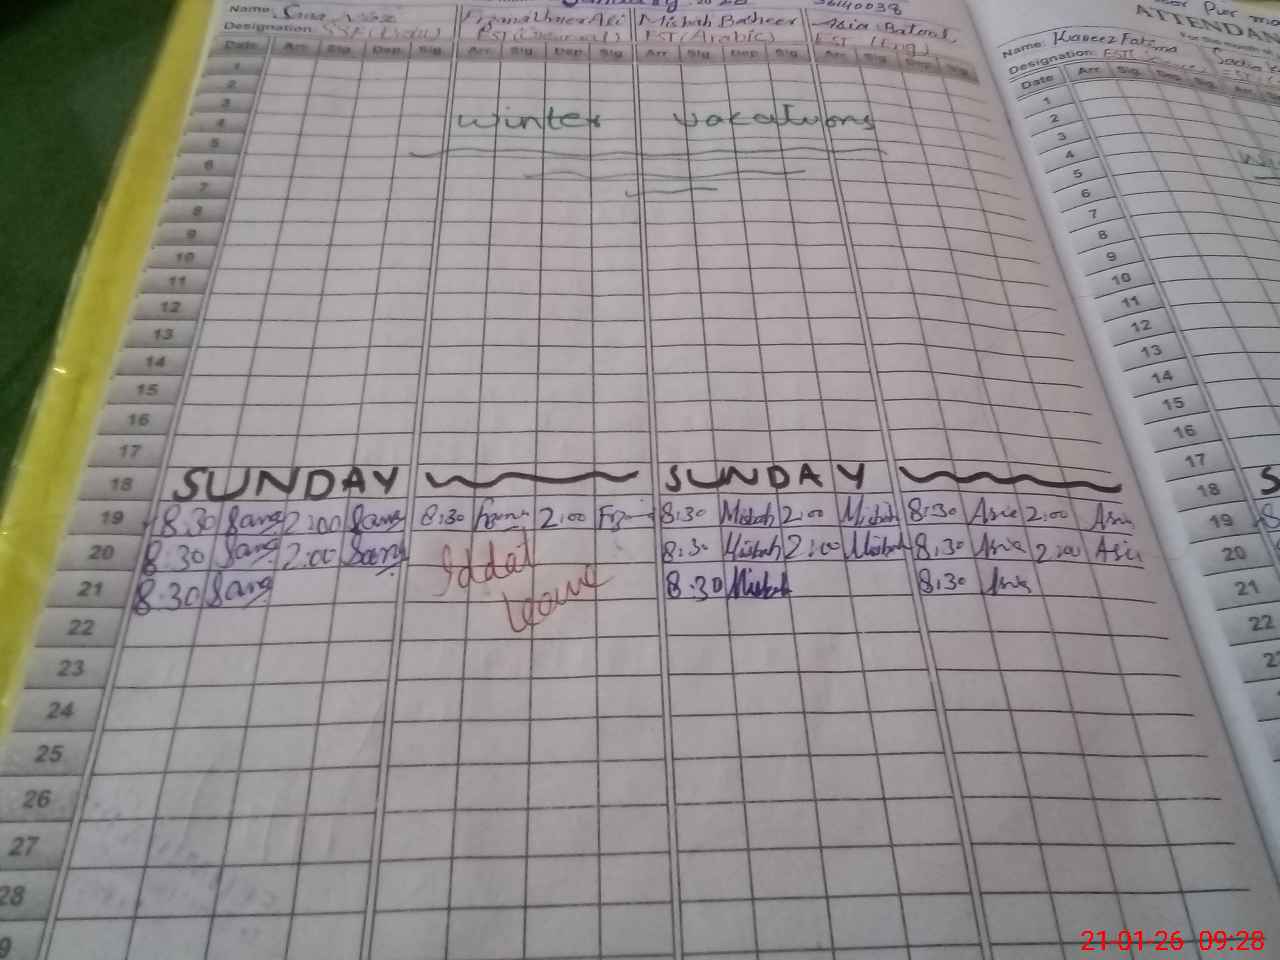 Name: Sana
Designation: SST
Misbah Basheer
EST (Arabic)
Asia Batool
EST (Eng)
Date Arr Sig Dep Sig Arr Sig Dep Sig Arr Sig Dep Sig Arr Sig Dep Sig
1
2
3
4 winter vacations
5
6
7
8
9
10
11
12
13
14
15
16
17
18 SUNDAY SUNDAY
19 8:30 Sana 2:00 Sana 8:30 2:00 8:30 Misbah 2:00 Misbah 8:30 Asia 2:00 Asia
20 8:30 Sana 2:00 Sana Iddat 8:30 Misbah 2:00 Misbah 8:30 Asia 2:00 Asia
21 8:30 Sana leave 8:30 Misbah 8:30 Asia
22
23
24
25
26
27
28
9
ATTENDAN
Name: Kaneez Fatima
Designation: EST
Date Arr Sig Dep Sig Arr
1
2
3
4
5
6
7
8
9
10
11
12
13
14
15
16
17
18 S
19
20
21
22
21-01-26 09:28